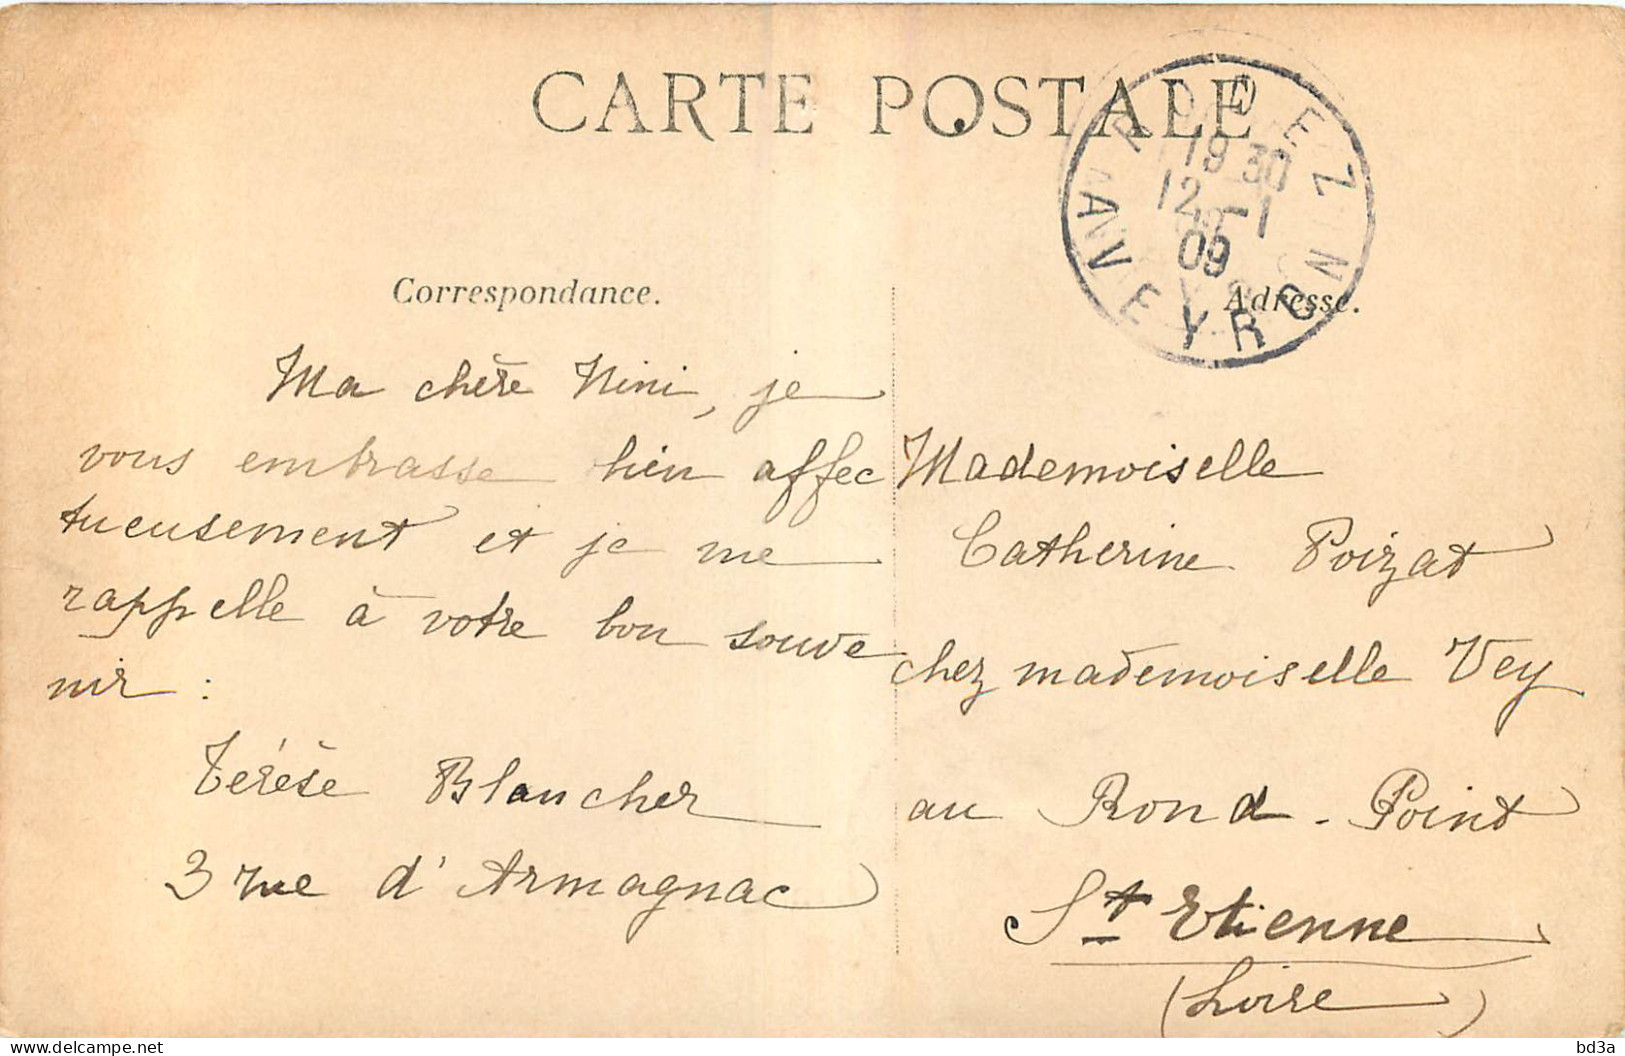 CARTE POSTALE
RODEZ
19 30
12 -1
09
AVEYRON
Correspondance.
Ma chère Nini, je
vous embrasse bien affec
tueusement et je me
rappelle à votre bon souve
nir :
Térèse Blancher
3 rue d'Armagnac
Adresse.
Mademoiselle
Catherine Poizat
chez mademoiselle Vey
au Rond-Point
St Etienne
(Loire)
bd3a